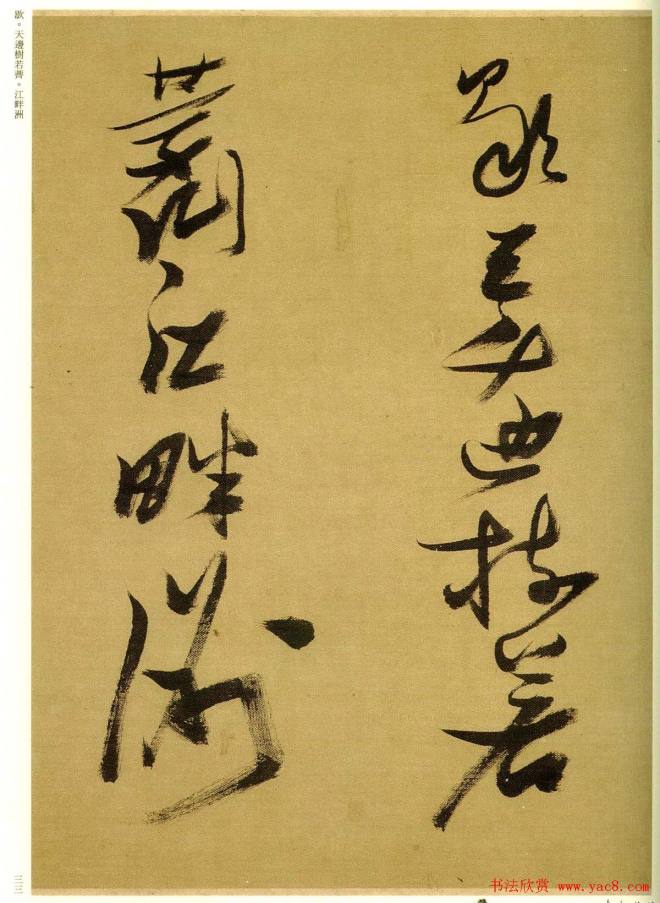 歇天邊樹若
薺江畔洲
歇。天邊樹若薺。江畔洲
三三
书法欣赏 www.yac8.com